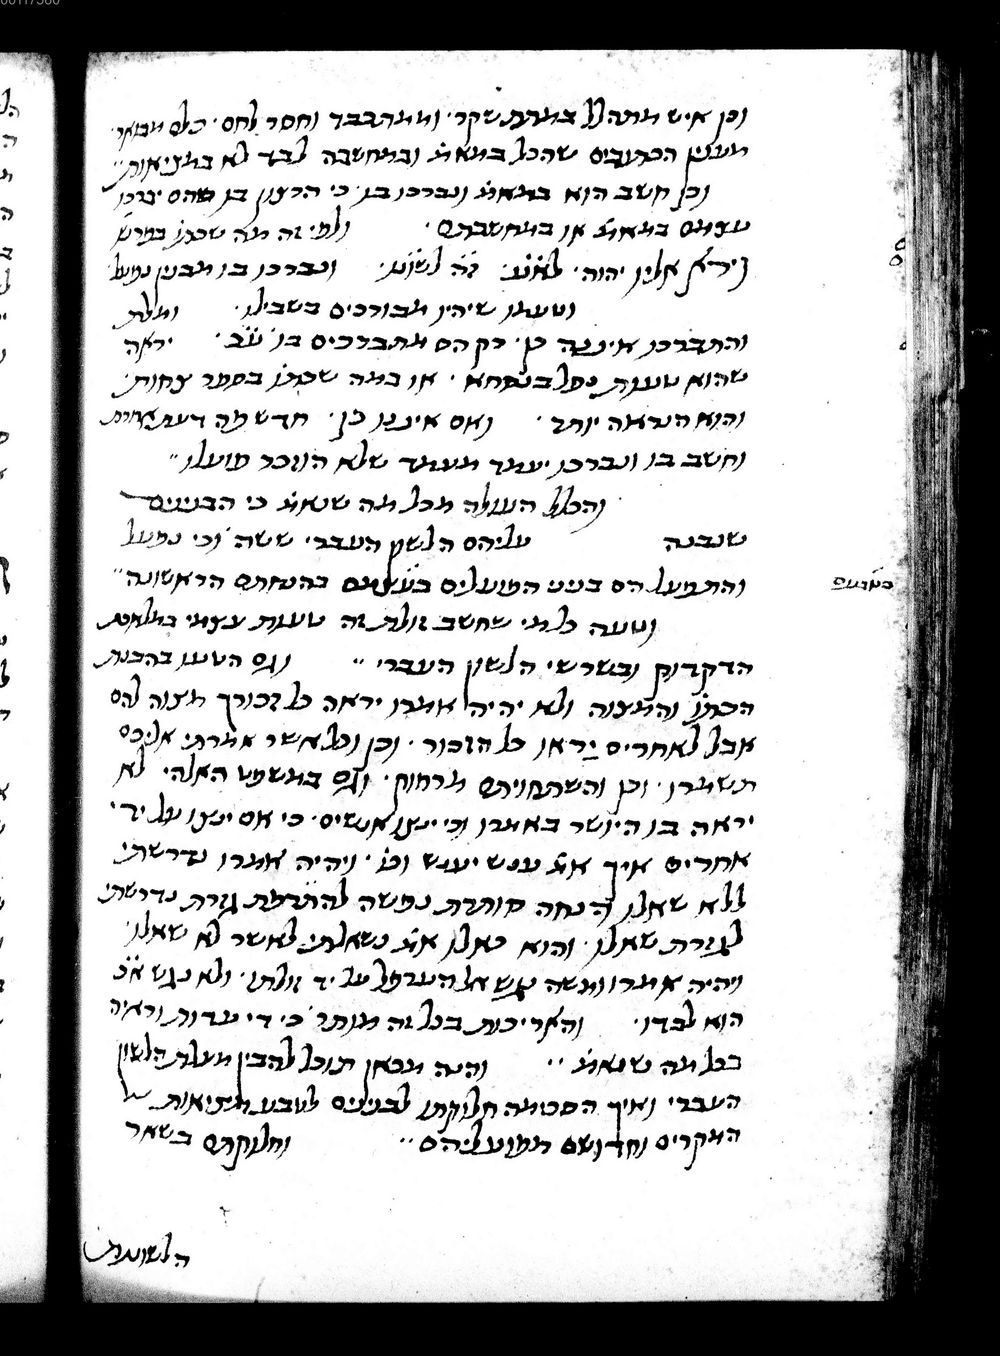 וכן איש מתהלל במתת שקר׳ וממתכבד וחסר לחם׳ כלם מבואר
מענין הכתובים שהכל במאמ׳ ובמחשבה לבד לא במציאות״
וכן חשב הוא במאמ׳ ונברכו בך׳ כי הרצון בו שהם יברכו
עצמם במאמ׳ או במחשבתם׳ ולפי זה מה שכתו׳ במרש׳
וירא אליו יהוה׳ זה לשונו׳ ונברכו בו מבנין נפעל
וטעמו שיהיו מבורכים בשבילו׳ ומלת
והתברכו איננה כן׳ רק הם מתברכים בו׳ יראה
שהוא טעות נפל בנסחא׳ או במה שכתו׳ בספר צחות׳
והוא הנראה יותר׳ ואם איננו כן׳ חדש מה דעת אחרת
וחשב בו ונברכו יעמד מעמד שלא הוזכר פועלו״
והכלל העולה מכל מה שנאמ׳ כי הבנינים
שנבנה עליהם הלשון העברי ששה׳ וכי נפעל
והתפעל הם בניני הפועלים בעצמם בהנחתם הראשונה״
וטעה כל מי שחשב זולת זה טעות עצמי במלאכת
הדקדוק ובשרשי הלשון העברי״ וגם הטעו בהבנת
הכתו׳ והמצוה ולא יהיה אמרו יראה כל זכורך מצוה להם
אבל לאחרים יראו כל הזכור׳ וכן וכל אשר אמרתי אליכם
תשמרו׳ וכן והשתחויתם מרחוק׳ וגם במשפט האלהי לא
יראה בו היושר באמרו וכי ינצו אנשים׳ כי אם ינצו על יד
אחרים איך אמ׳ ענש יענש וכו׳׳ ויהיה אמרו נדרשתי
ללא שאלו הנחה סותרת נפשה להתרפת גזרת נדרשתי
לגזרת שאלו׳ והוא כאלו אמ׳ נשאלתי לאשר לא שאלו׳
ויהיה אמרו ומשה נגש אל הערפל על יד זולתו׳ ולא נגש
הוא לבדו׳ והאריכות בכל זה מותר׳ כי די עדות וראיה
בכל מה שנאמ׳״ והנה מכאן תוכל להבין מעלת הלשון
העברי ואיך הסכימה חלוקתו לבנינים לטבע מציאות
המקרים וחדושם מפועליהם״ וחלוקתם בשאר
הלשונות